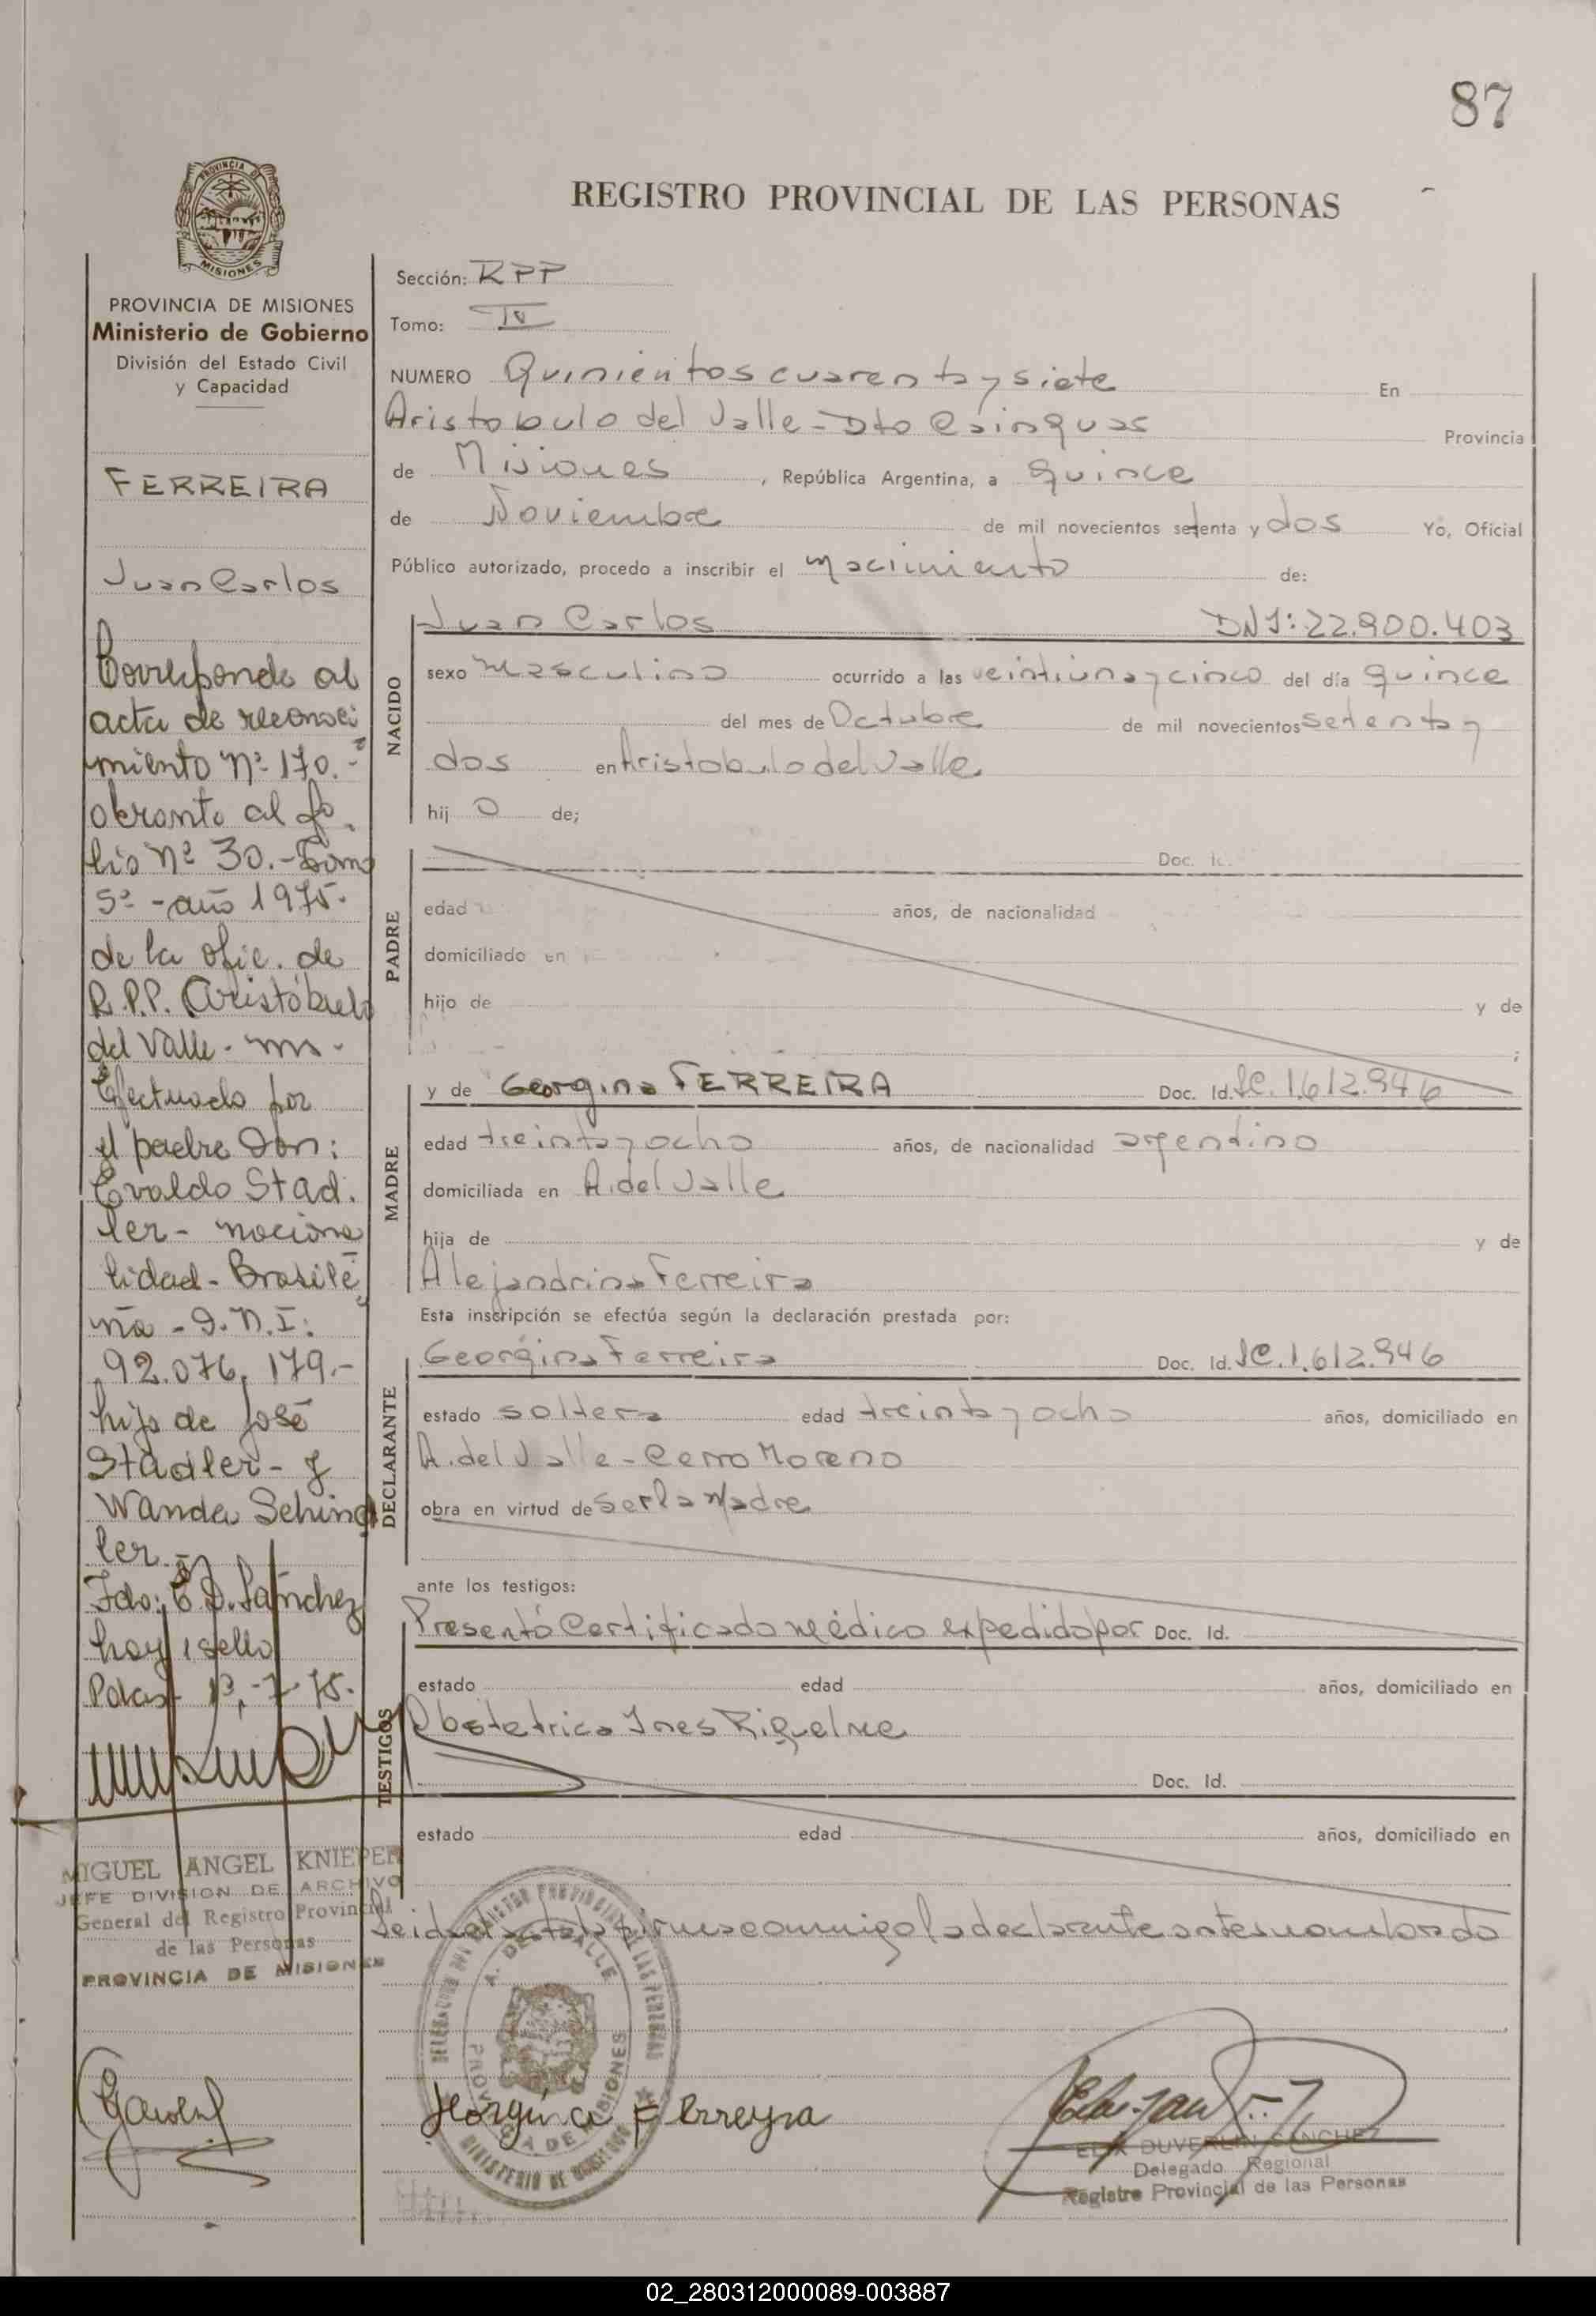 87
REGISTRO PROVINCIAL DE LAS PERSONAS
PROVINCIA DE MISIONES
Ministerio de Gobierno
División del Estado Civil
y Capacidad
FERREIRA
Juan Carlos
Corresponde al
acta de reconoci
miento nº 170.-
obrante al fo
lio nº 30.- Tomo
5º - año 1975.
de la ofic. de
R.P.P. Aristóbulo
del Valle - mns -
Efectuado por
el padre Don:
Evaldo Stad.
ler - naciona
lidad - Brasile
ña - D.N.I:
92.076.179.-
hijo de José
Stadler - y
Wanda Schind
ler.-
Fdo: E D. Sánchez
hay sello
Pdas
MIGUEL ANGEL KNIEPER
JEFE DIVISION DE ARCHIVO
General del Registro Provincial
de las Personas
PROVINCIA DE MISIONES
Sección: RPP
Tomo: IV
NUMERO Quinientos cuarenta y siete En
Aristobulo del Valle - Dto Cainguas Provincia
de Misiones, República Argentina, a quince
de Noviembre de mil novecientos setenta y dos Yo, Oficial
Público autorizado, procedo a inscribir el nacimiento de:
Juan Carlos DNI: 22.900.403
NACIDO
sexo masculino ocurrido a las veintiuna y cinco del día quince
del mes de Octubre de mil novecientos setenta y
dos en Aristobulo del Valle
hij o de;
PADRE
Doc. Id.
edad años, de nacionalidad
domiciliado en
hijo de y de
;
MADRE
y de Georgina FERREIRA Doc. Id. LC. 1.612.946
edad treinta y ocho años, de nacionalidad argentina
domiciliada en A. del Valle
hija de y de
Alejandrina Ferreira
Esta inscripción se efectúa según la declaración prestada por:
DECLARANTE
Georgina Ferreira Doc. Id. LC. 1.612.946
estado soltera edad treinta y ocho años, domiciliado en
A. del Valle - Cerro Moreno
obra en virtud de ser la Madre
ante los testigos:
TESTIGOS
Presentó Certificado médico expedido por Doc. Id.
estado edad años, domiciliado en
Obstetrica Ines Riquelme
Doc. Id.
estado edad años, domiciliado en
Leida el acta la firma conmigo la declarante antes nombrada
DELEGACION DEL REGISTRO PROVINCIAL DE LAS PERSONAS
A. DEL VALLE
PROVINCIA DE MISIONES
MINISTERIO DE GOBIERNO
Georgina Ferreyra
ELIX DUVERLIN SANCHEZ
Delegado Regional
Registro Provincial de las Personas
02_280312000089-003887